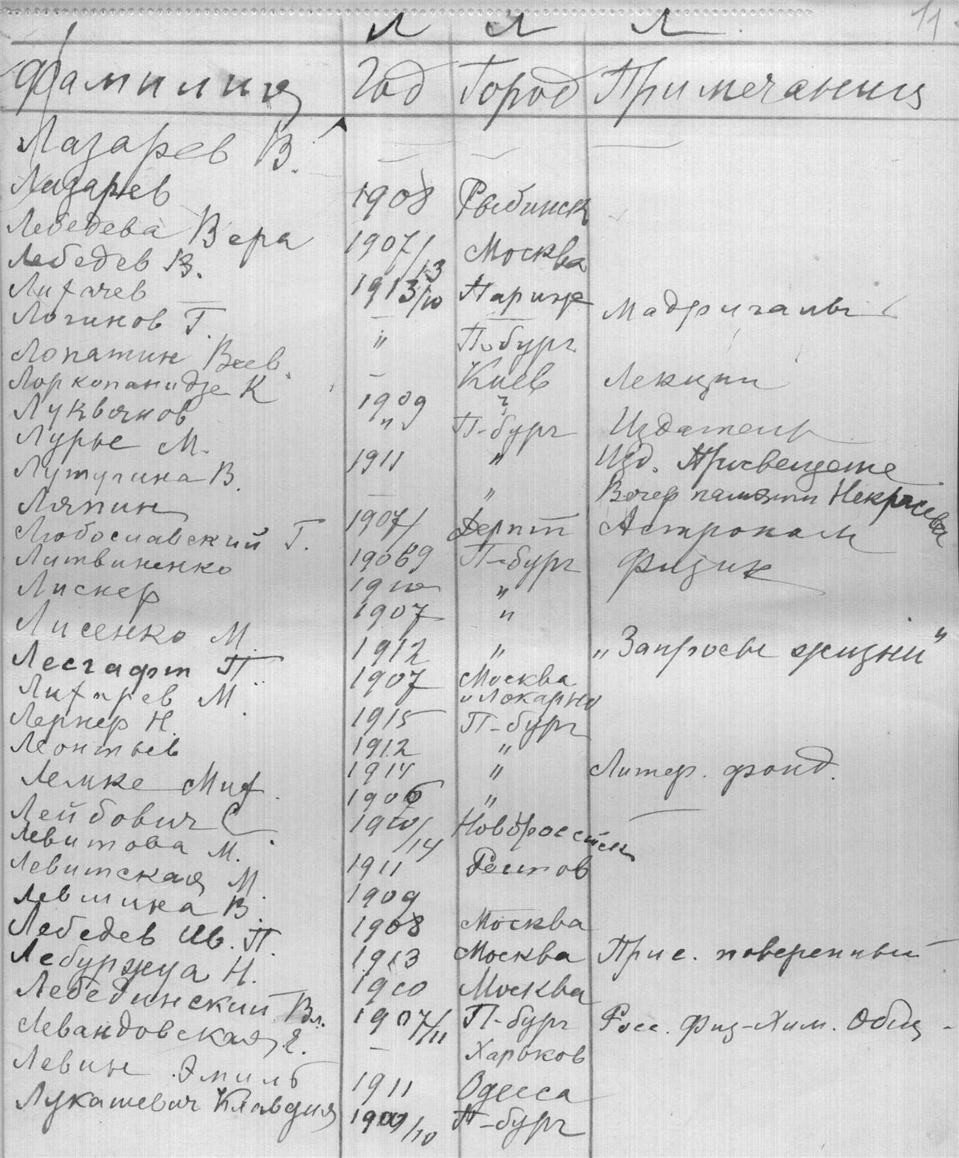 Л Л Л 11
Фамилия Год Город Примечания
Лазарев В. — — —
Лазарев 1908 Рыбинск
Лебедева Вера 1907/13 Москва
Лебедев В. 1913/10 Париж
Лихачев — Мадригалы
Логинов Г. " П-бург
Лопатин Всев. — Киев Лекции
Лоркопанидзе К 1909 ?
Лукьянов " П-бург Издатель
Лурье М. 1911 " Изд. Просвещение
Лутугина В. — " Вечер памяти Некрасова
Ляпин 1907/ Дерпт Астроном
Любославский Г. 19089 П-бург Физик
Литвиненко 1910 "
Лискер 1907 "
Лисенко М. 1912 " „Запросы жизни"
Лесгафт П. 1907 Москва
Лихарев М. и Локарно
Лернер Н. 1915 П-бург
Леонтьев 1912 "
Лемке Мих. 1914 " Литер. фонд.
Лейбович С 1906 " —
Левитова М. 1910/14 Новороссийск
Левитская М. 1911 Ростов
Левшина В. 1909
Лебедев Ив. П. 1908 Москва
Лебуржуа Н. 1913 Москва Прис. поверенный
Лебединский Вл. 1910 Москва
Левандовская Е. 1907/11 П-бург Росс. Физ-Хим. Общ-
Левин Эмиль — Харьков
Лукашевич Клавдия 1911 Одесса
1909/10 П-бург